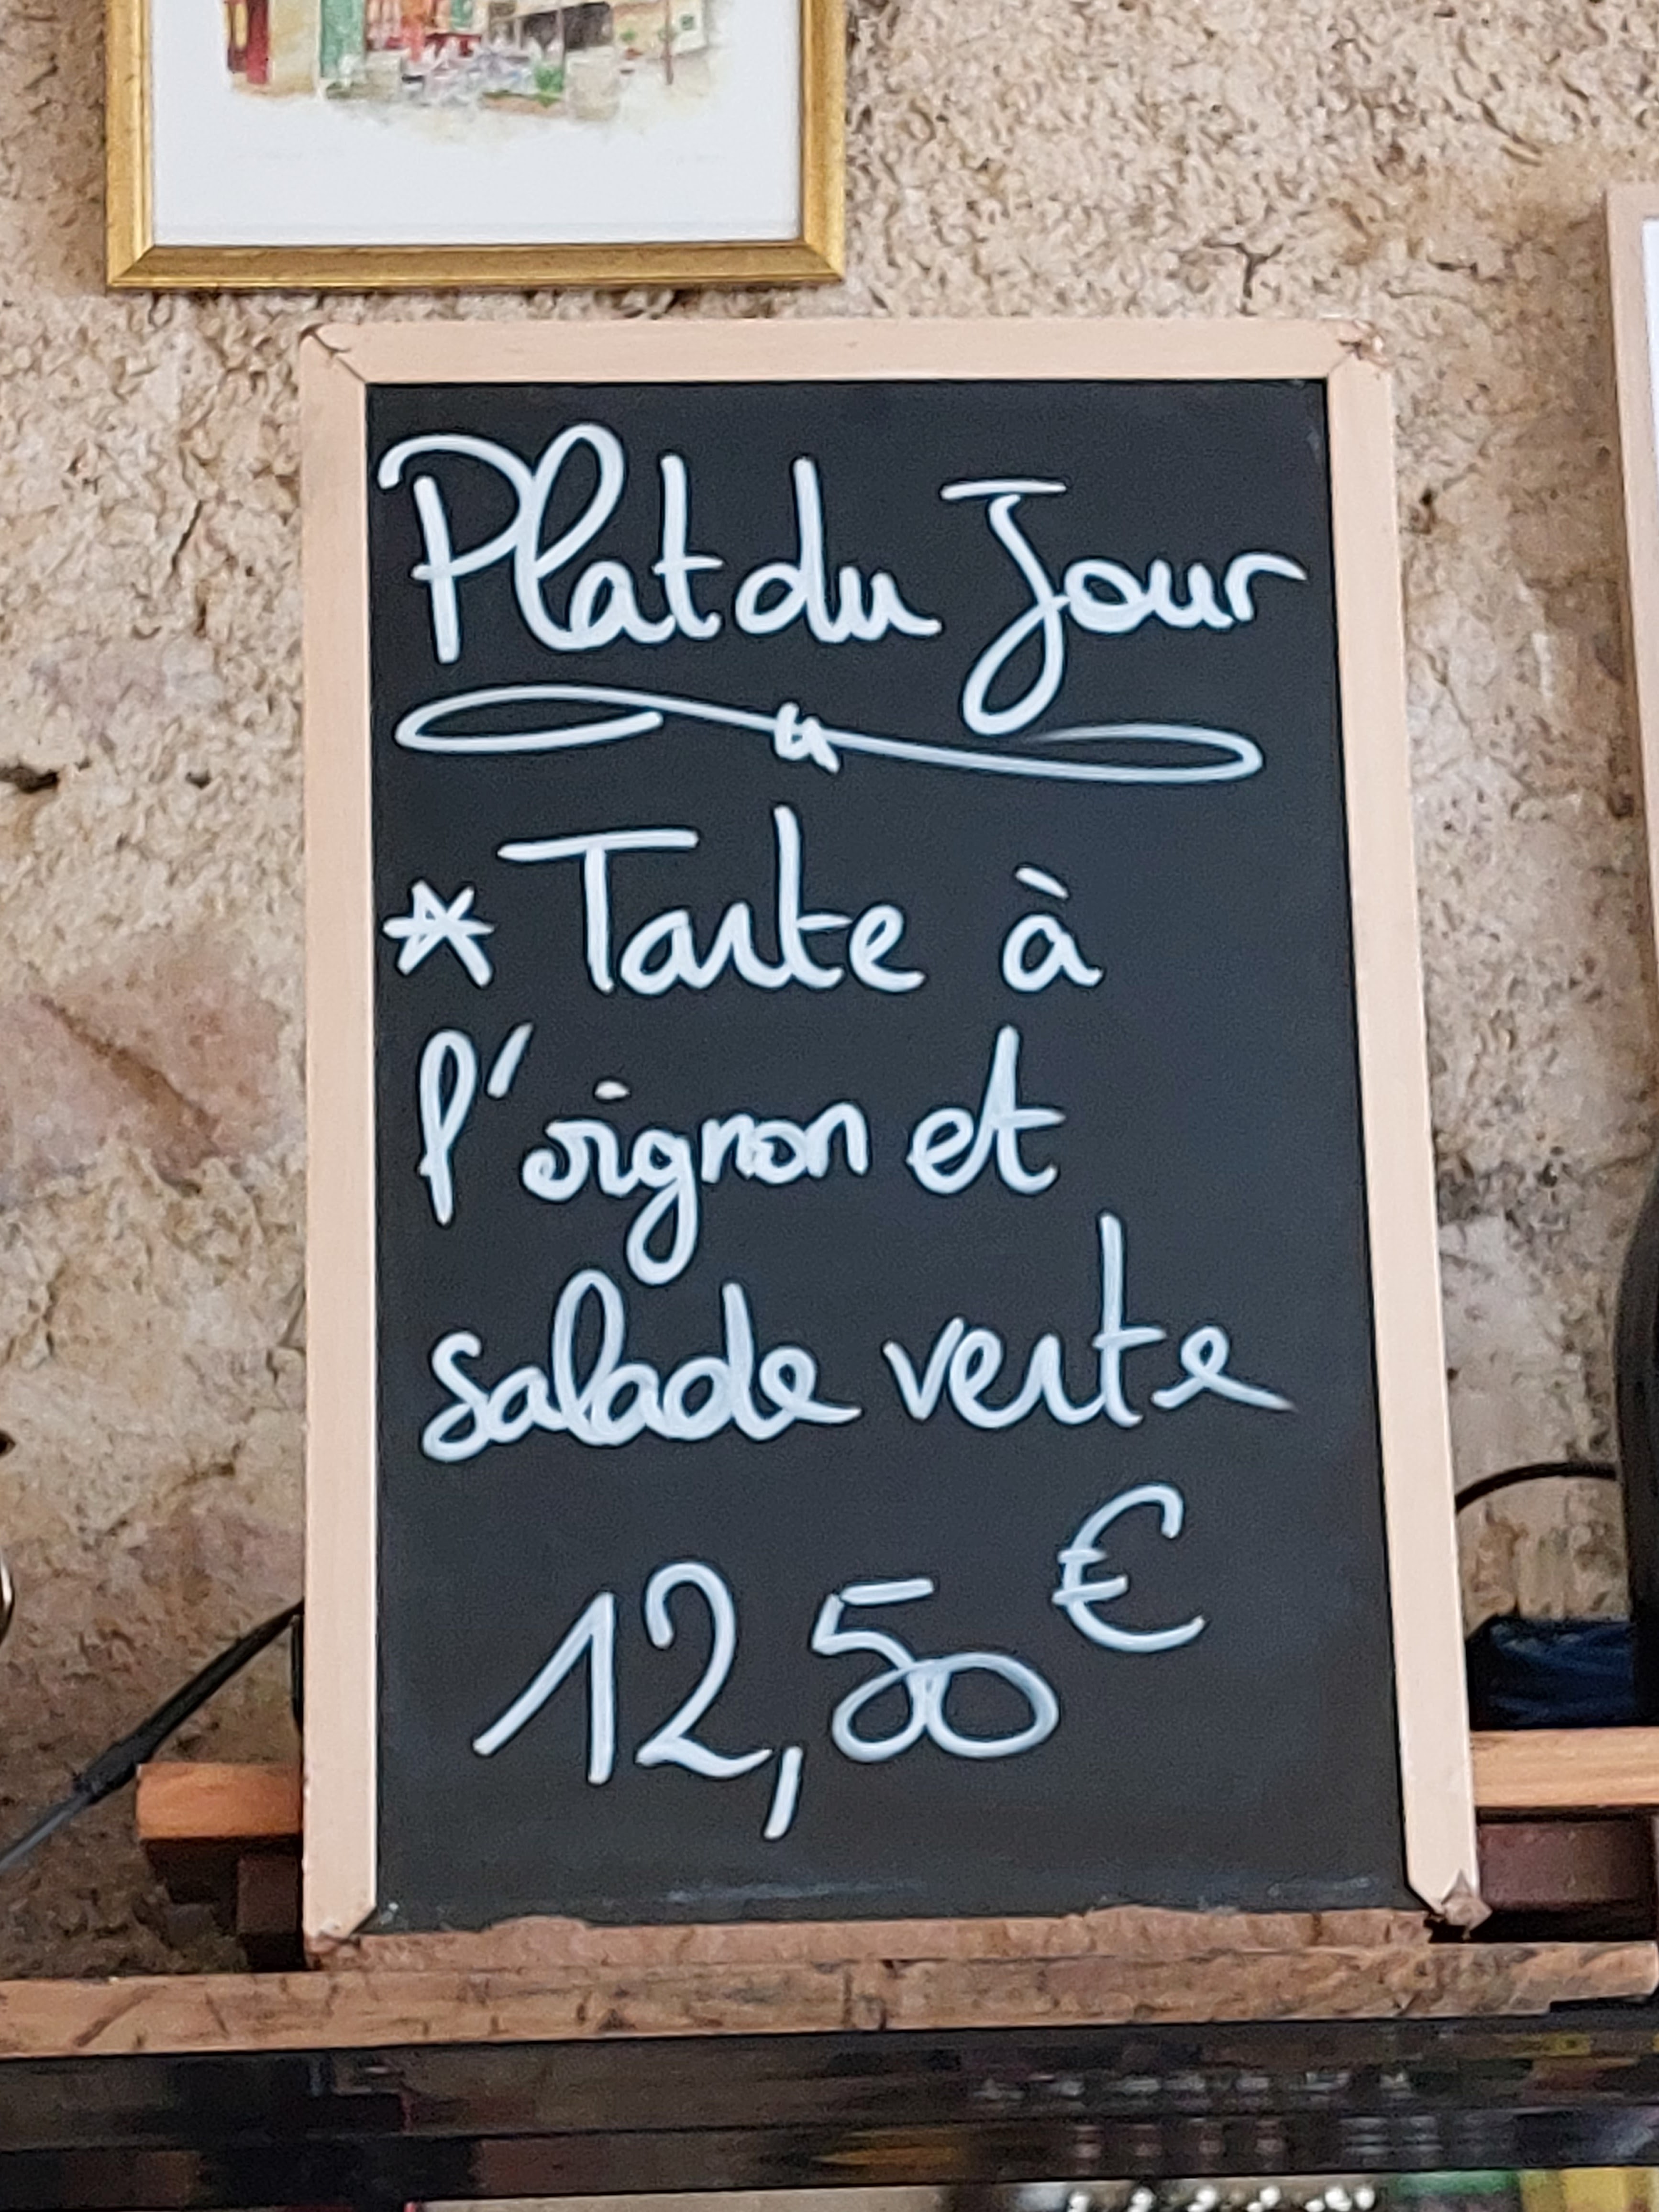 Plat du Jour
* Tarte à
l'oignon et
salade verte
12,50 €